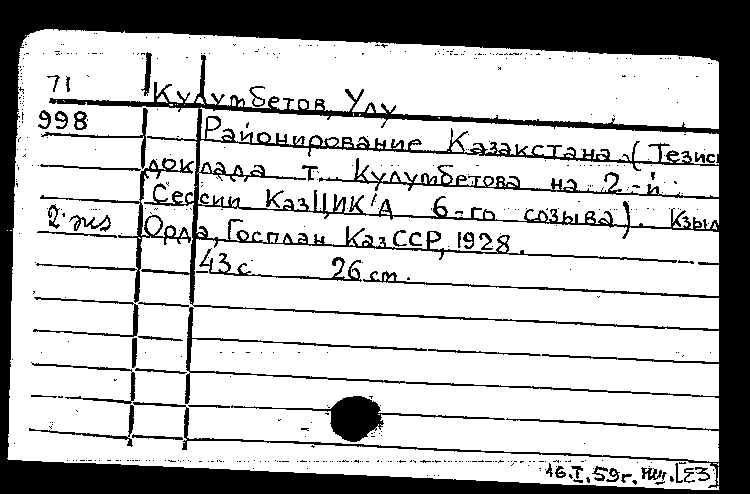 71
Кулумбетов, Улу
998
Районирование Казакстана. (Тезис
доклада т. Кулумбетова на 2-й
Сессии КазЦИК'А 6-го созыва). Кзыл
2 экз
Орда, Госплан КазССР, 1928.
43 с. 26 см.
16.I.59г. [23]